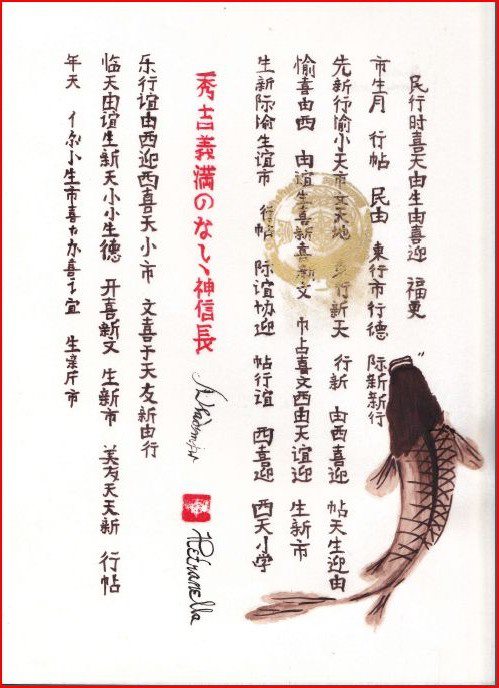 民行时喜天由生由喜迎 福更
市生月 行帖 民由 東行市行德 际新新行
先新行愉小天市文天地 行新天 行新 由西喜迎 帖天生迎由
愉喜由西 由谊生喜新喜新文 市占喜文西由天谊迎 生新市
生新际渝生谊市 行帖 际谊协迎 帖行谊 西喜迎 西天小学
秀吉義満のなしヽ神信長
Petranella
乐行谊由西迎西喜天小市 文喜于天友新由行
临天由谊生新天小小生德 开喜新文 生新市 美友天天新 行帖
年天 亻尔小生市喜力办喜讠宜 生亲斤市